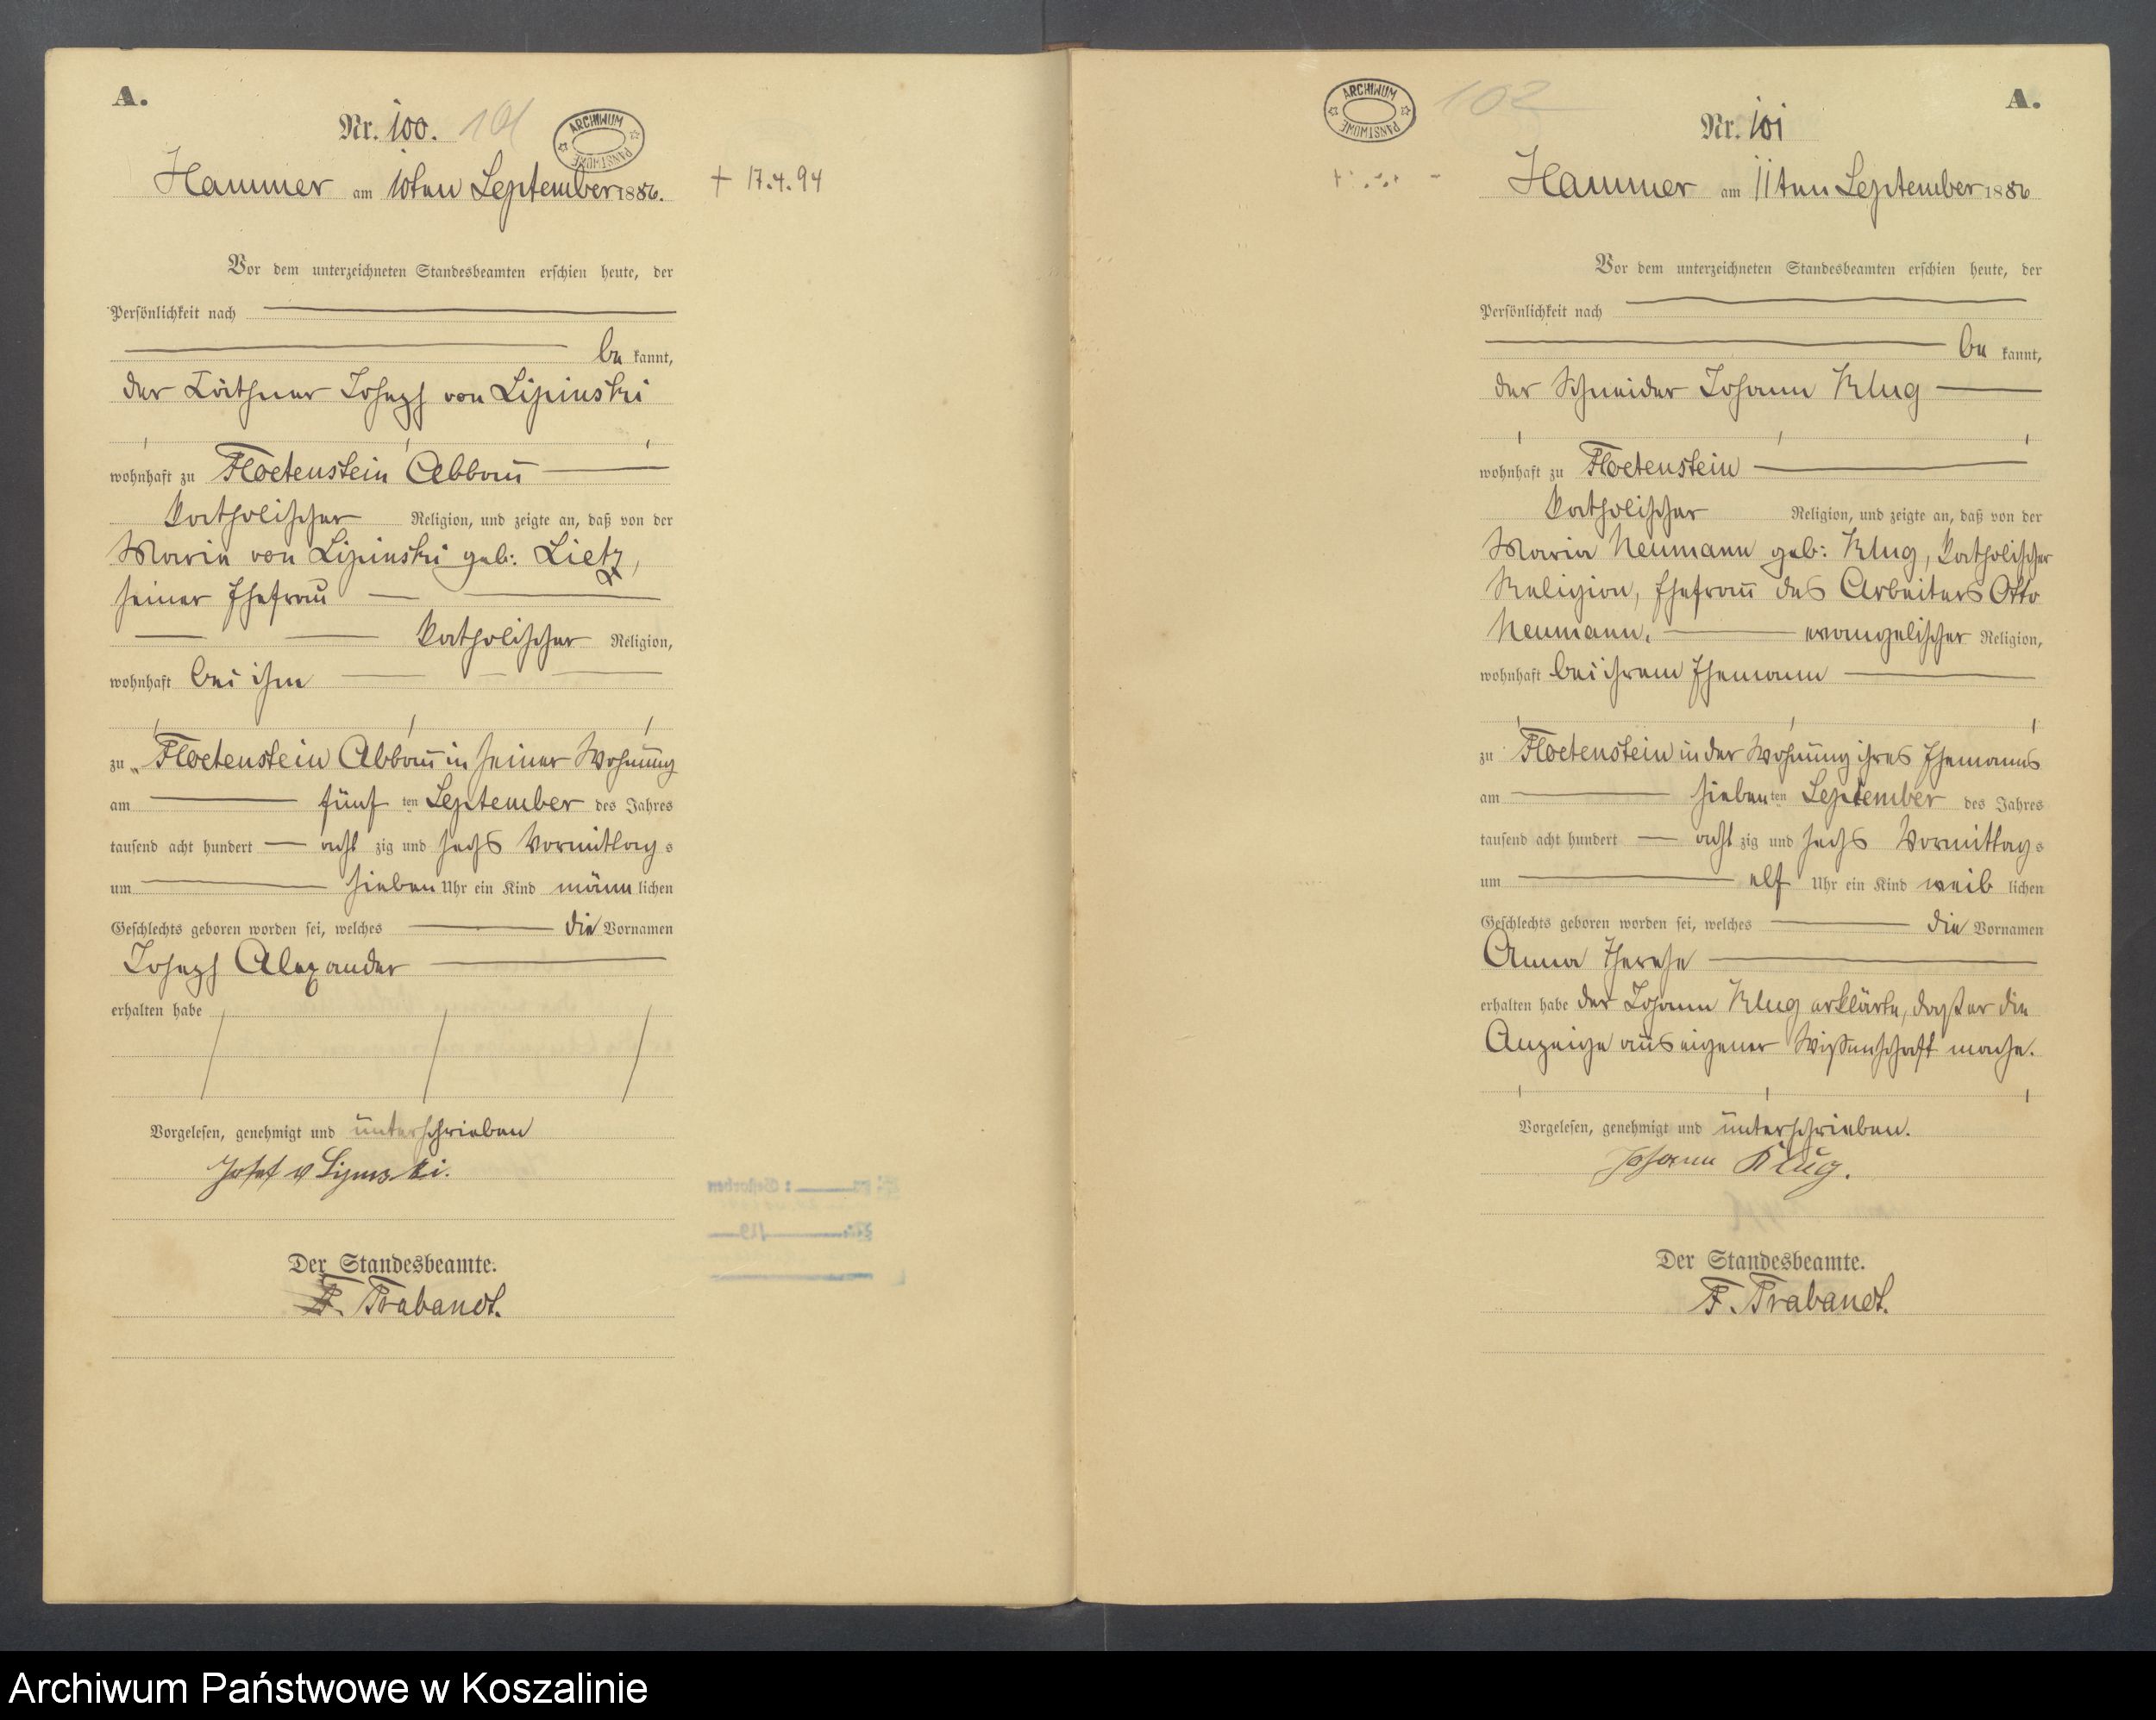 A.
Nr. 100. 101
ARCHIWUM PAŃSTWOWE
Hammer am 10ten September 1886.
+ 17.4.94
Vor dem unterzeichneten Standesbeamten erschien heute, der
Persönlichkeit nach
be kannt,
der Käthner Joseph von Lipinski
wohnhaft zu Floetenstein Abbau
katholischer Religion, und zeigte an, daß von der
Maria von Lipinski geb: Lietz,
seiner Ehefrau
katholischer Religion,
wohnhaft bei ihm
zu Floetenstein Abbau in seiner Wohnung
am fünf ten September des Jahres
tausend acht hundert acht zig und sechs Vormittags
um sieben Uhr ein Kind männ lichen
Geschlechts geboren worden sei, welches die Vornamen
Joseph Alexander
erhalten habe
Vorgelesen, genehmigt und unterschrieben
Josef v Lipinski.
Der Standesbeamte.
F. Trabandt.
ARCHIWUM PAŃSTWOWE
102
A.
Nr. 101
Hammer am 11ten September 1886
Vor dem unterzeichneten Standesbeamten erschien heute, der
Persönlichkeit nach
be kannt,
der Schneider Johann Klug
wohnhaft zu Floetenstein
katholischer Religion, und zeigte an, daß von der
Maria Neumann geb: Klug, katholischer
Religion, Ehefrau des Arbeiters Otto
Neumann, evangelischer Religion,
wohnhaft bei ihrem Ehemann
zu Floetenstein in der Wohnung ihres Ehemanns
am sieben ten September des Jahres
tausend acht hundert acht zig und sechs Vormittags
um elf Uhr ein Kind weib lichen
Geschlechts geboren worden sei, welches die Vornamen
Anna Therese
erhalten habe der Johann Klug erklärte, daß er die
Anzeige aus eigener Wissenschaft mache.
Vorgelesen, genehmigt und unterschrieben.
Johann Klug.
Der Standesbeamte.
F. Trabandt.
Archiwum Państwowe w Koszalinie